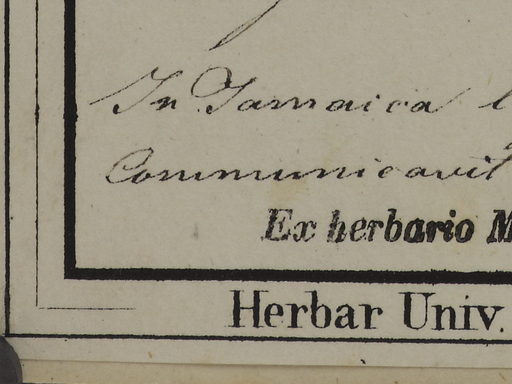 In Jamaica l
Communicavit
Ex herbario M
Herbar Univ.